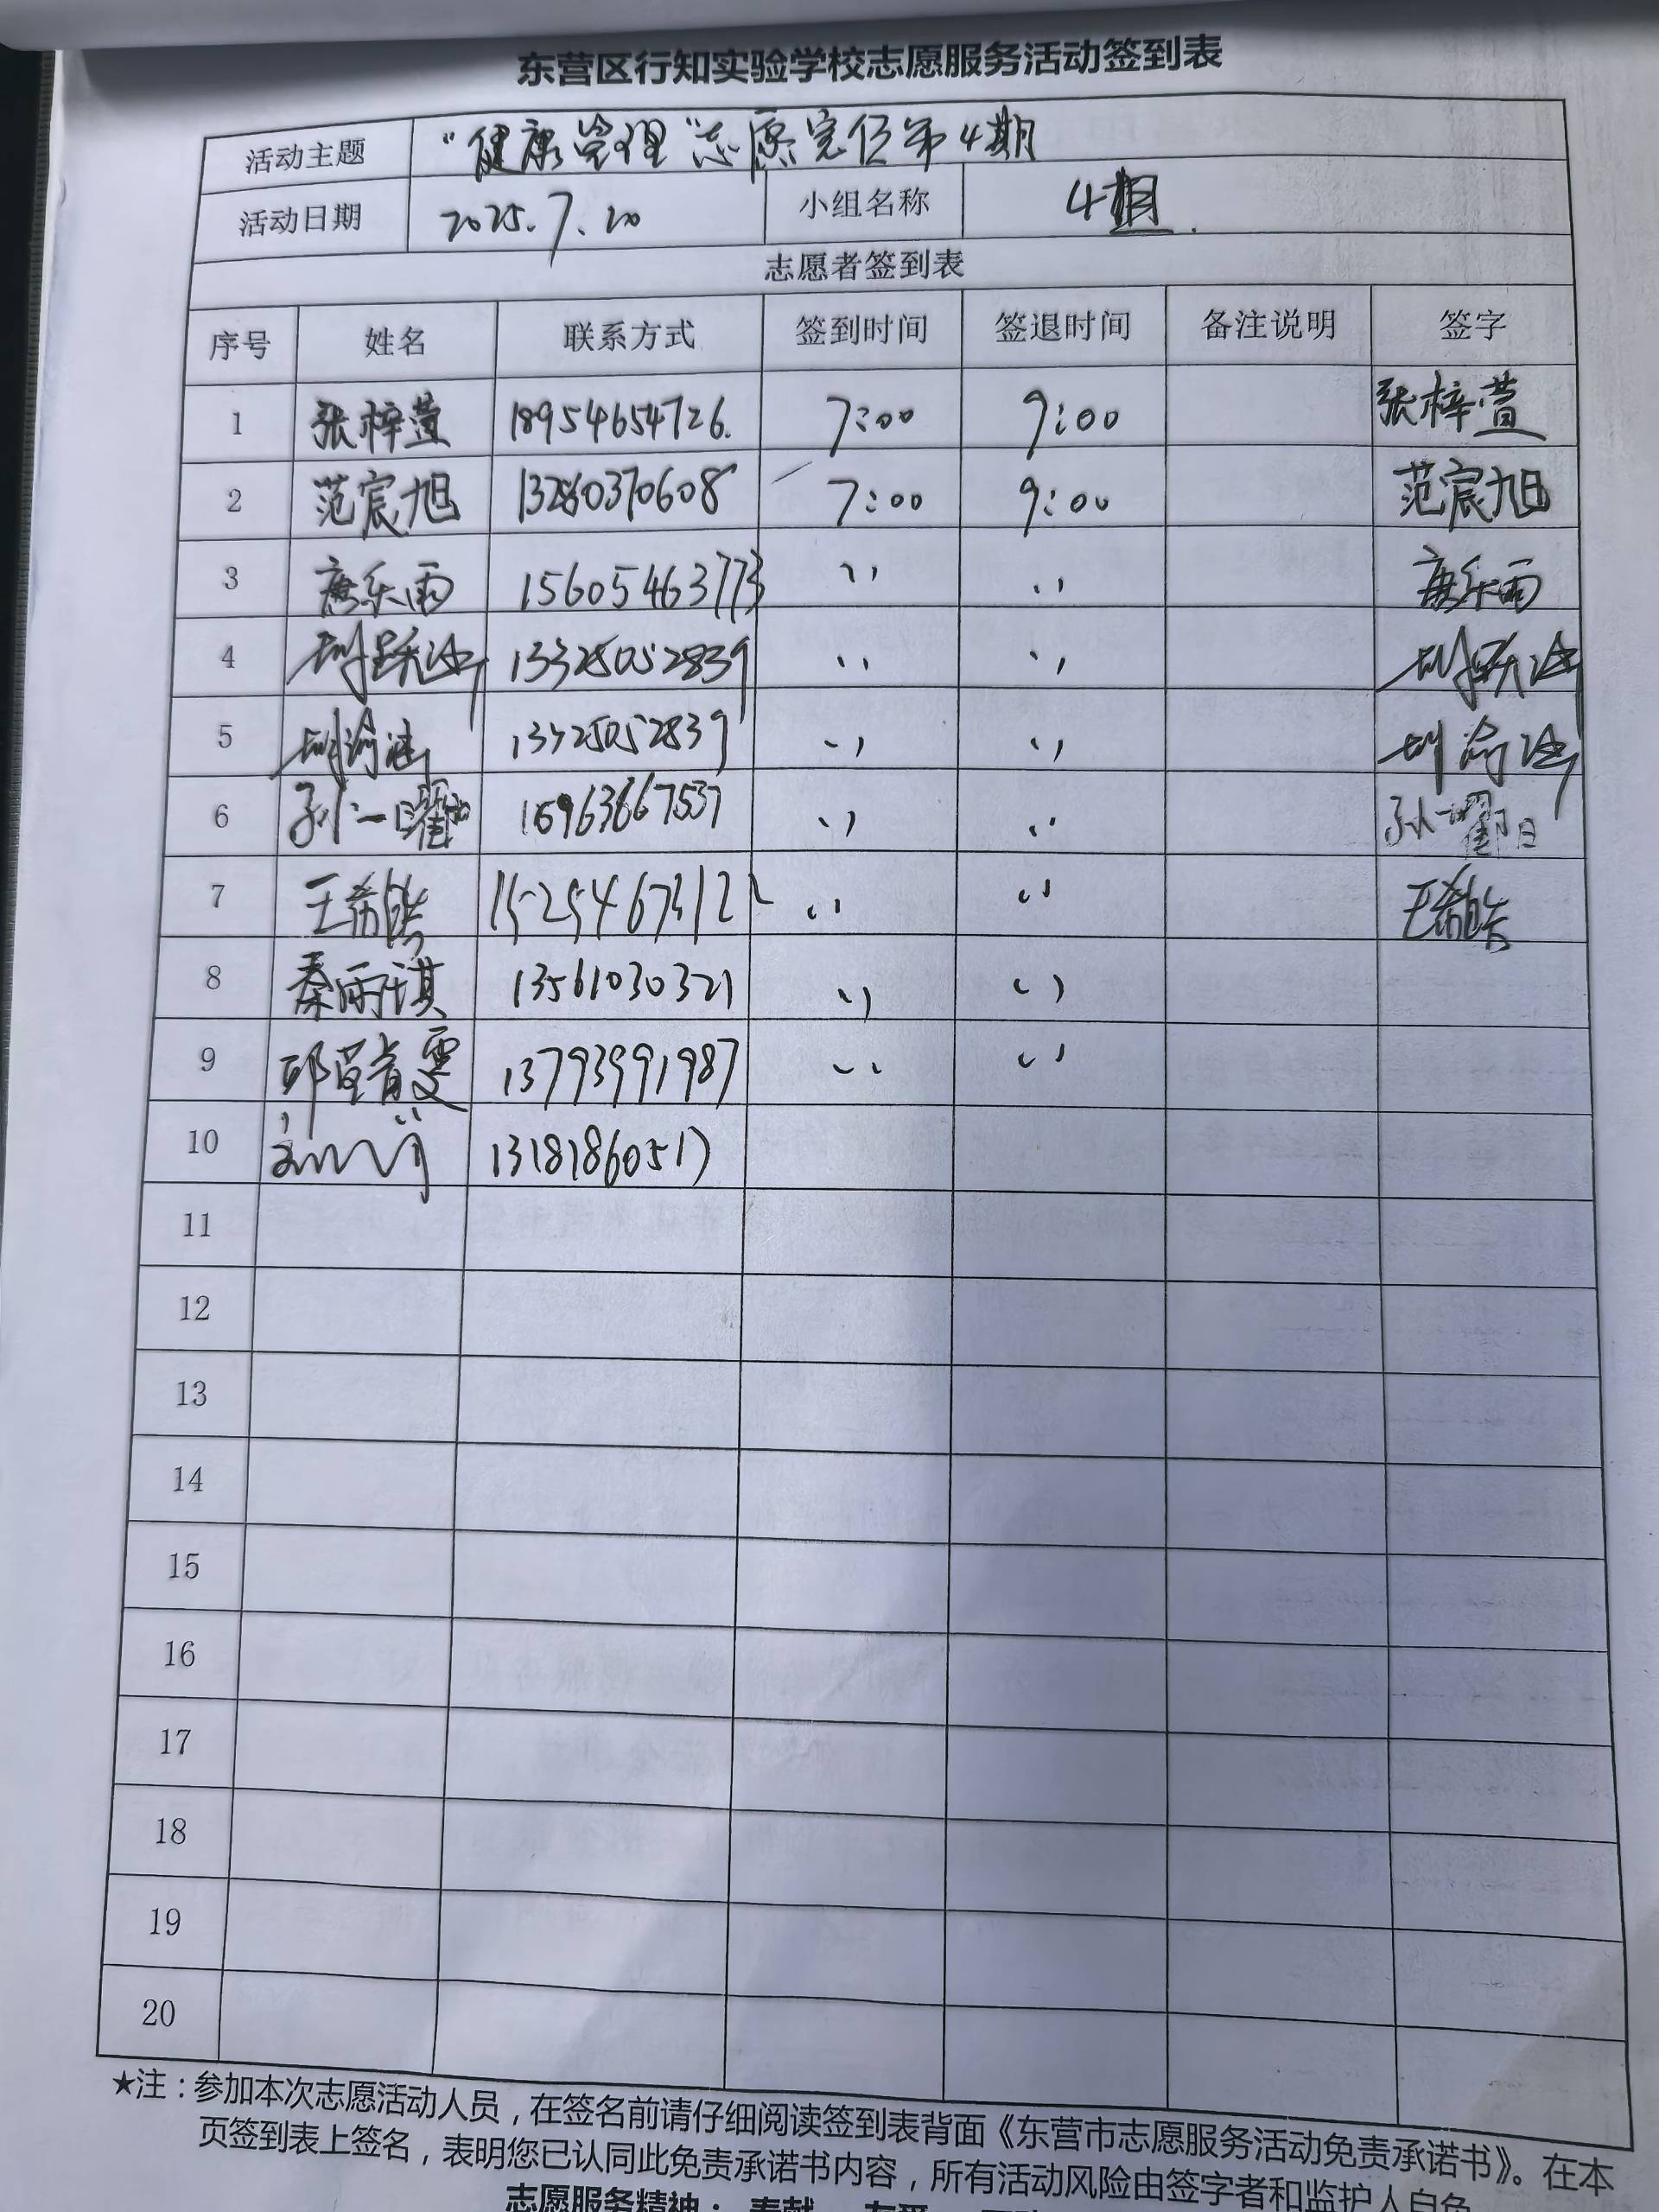 东营区行知实验学校志愿服务活动签到表
活动主题 "健康管理"志愿 第4期
活动日期 2025.7.20 小组名称 4期
志愿者签到表
序号 姓名 联系方式 签到时间 签退时间 备注说明 签字
1 张梓萱 18954654726. 7:00 9:00 张梓萱
2 范宸旭 13280370608 7:00 9:00 范宸旭
3 唐乐雨 15605463773 〃 〃 唐乐雨
4 13325052839 〃 〃
5 13325052839 〃 〃
6 孙一曜 〃 〃 孙一曜
7 王希皓 15254673122 〃 〃 王希皓
8 秦雨祺 13561030321 〃 〃
9 邱 雯 13793991987 〃 〃
10 13181860517
11
12
13
14
15
16
17
18
19
20
★注：参加本次志愿活动人员，在签名前请仔细阅读签到表背面《东营市志愿服务活动免责承诺书》。在本
页签到表上签名，表明您已认同此免责承诺书内容，所有活动风险由签字者和监护人自负
志愿服务精神：奉献